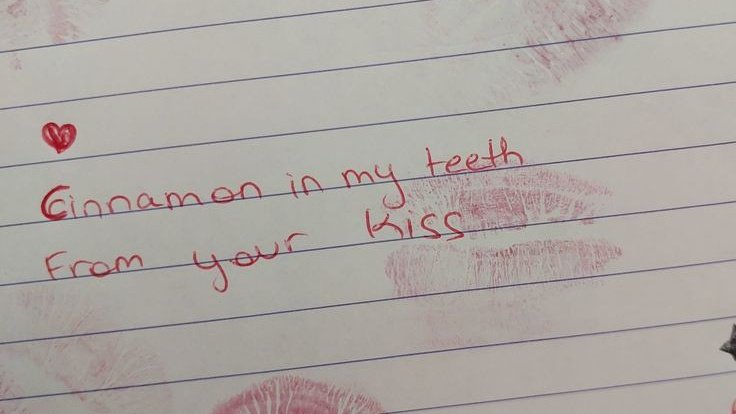 Cinnamon in my teeth
From your kiss